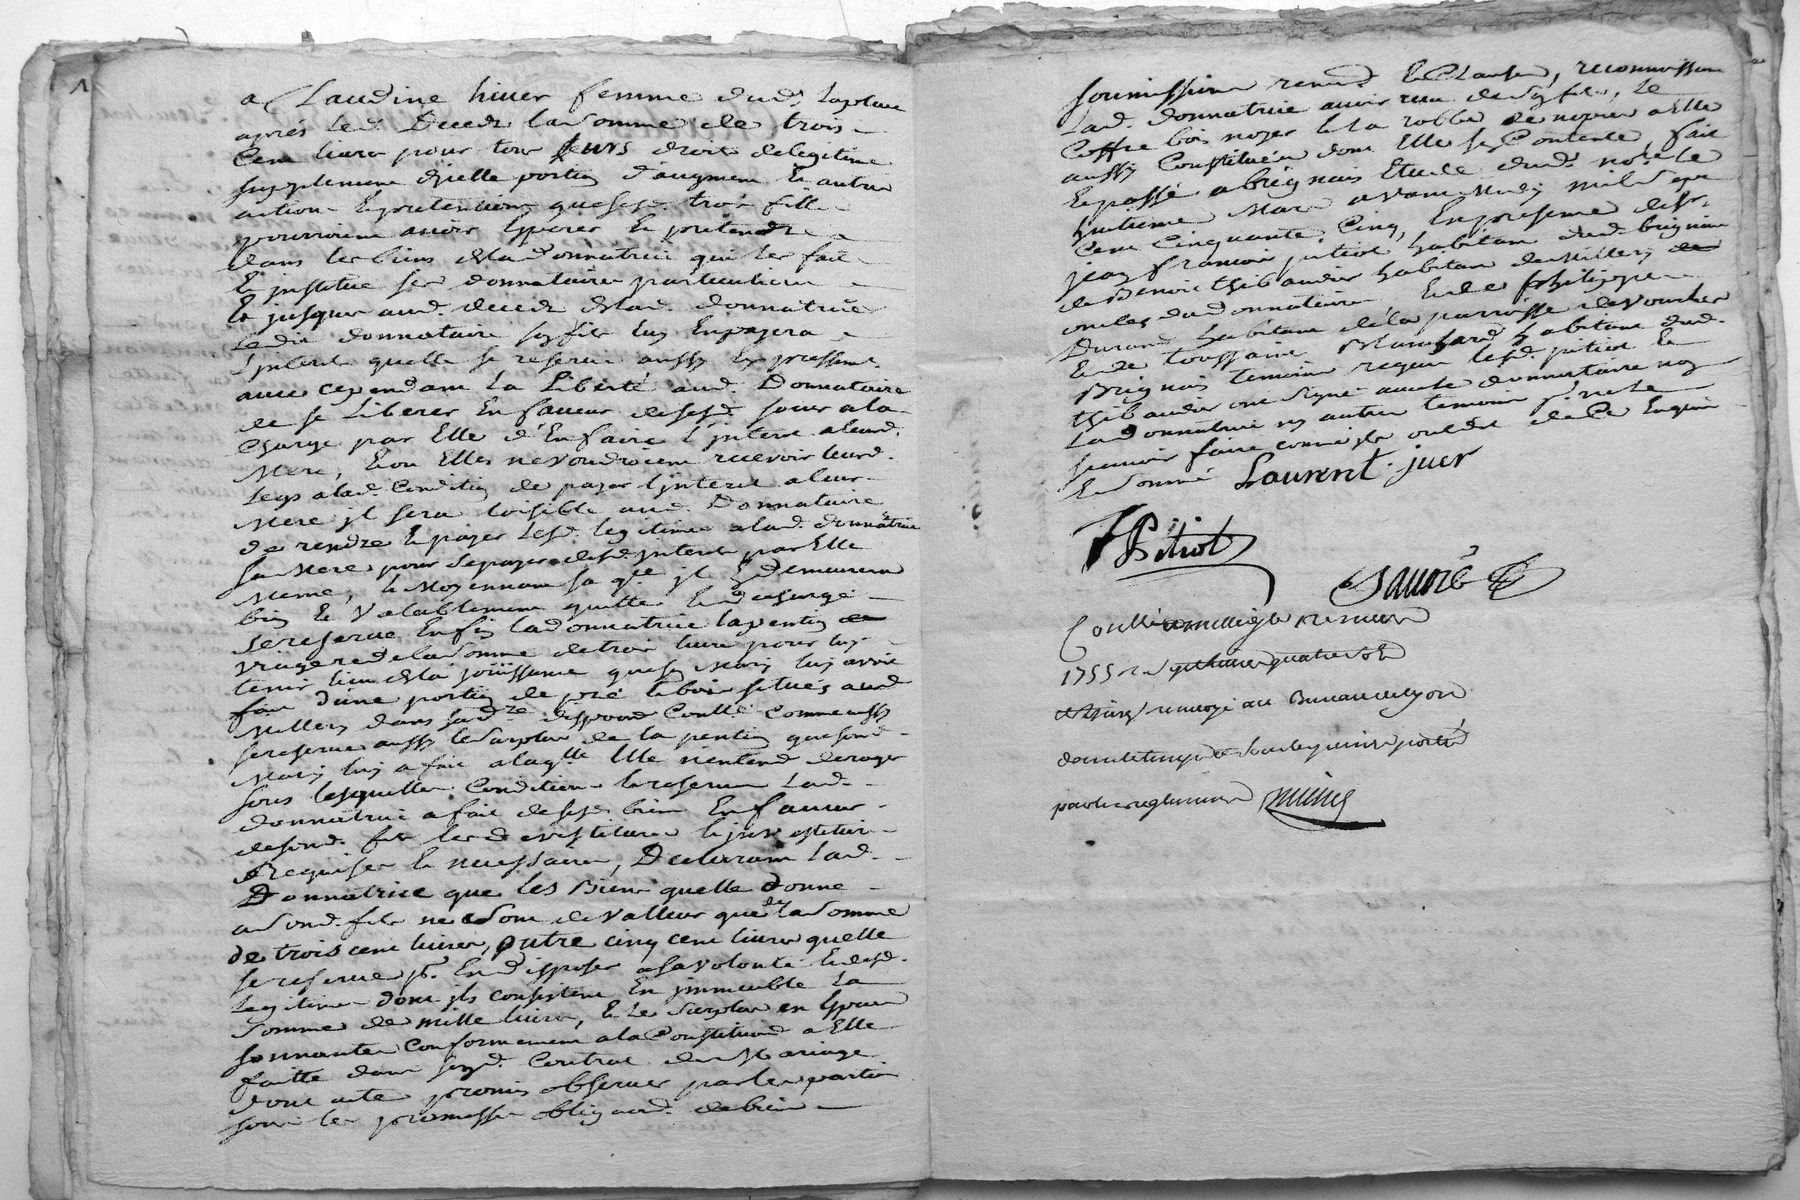 a Claudine hiver femme dud. laplace
après led. Deced la somme de trois
Cent livres pour tous leurs droits de legitime
supplement d'icelle portion d'augment et autres
actions et pretentions que sesd. trois filles
pourroient avoir Esperer Et pretendre
dans les biens de lad. Donnatrice qui les fait
Et institue ses donnataires particuliers
Et jusques aud. deced de lad. donnatrice
ledit donnataire son fils luy En payera
l'interet quelle se reserve aussy Expressement
avec cependant la Liberté aud. Donnataire
de se Liberer En faveur de sesd. soeurs a la
Charge par Elle d'En faire l'interet a leurd.
Mere, Et ou Elles ne voudroient recevoir leurd.
Legs a lad. Condition de payer l'interet a leur
Mere il sera loisible aud. Donnataire
de rendre Et payer lesd. legitimes a lad. donnatrice
sa Mere pour se payer desd. interets par Elle
Meme, Et Moyennant ce que il En demeurera
bien Et Valablement quitte Et decharge
Se reserve Enfin la donnatrice la pention
Viagere de la somme de trois livres pour luy
tenir lieu de la joüissance que son Mary luy avoit
fait d'une portion de pré et bois situés aud.
Millery dans sad. disposition Comme aussy
se reserve aussy le surplus de la pention que sond.
Mary luy a fait a laquelle Elle n'entend deroger
sous lesquelles Conditions et reserves Lad.
donnatrice a fait de sesd. biens En faveur
de sond. fils les devestitures et investitures
Requises Et necessaires, Declarant Lad.
Donnatrice que les Biens quelle donne
a sond. fils ne sont de valleur que de la somme
de trois cent livres, outre cinq cent livres quelle
se reserve pr. En disposer a sa volonté Et desd.
legitimes dont ils consistent En immeuble La
somme de mille livres, Et Le surplus en Especes
sonnantes conformement a la Constitution a Elle
faitte dans sond. Contrat de Mariage
dont acte promis observer par les parties
sous les promesses obligaon. de biens
soumissions renon. Et Clauses, reconnoissant
Lad. donnatrice avoir reçu de son fils, Le
Coffre bois noyer Et la robbe de noces a Elle
aussy Constituée dont Elle se Contente, fait
Et passé a Brignais Etude dud. nore. le
huitieme Mars avant Midy mil sept
Cent Cinquante Cinq, En presence de sr.
jean francois pitiot habitant dud. brignais
de Benoit thibaudier habitant de Millery
oncles du donnataire, Et de philippe
Durand habitant de la parroisse de Vourles
Et de toussaint Blanchard habitant dud.
Brignais temoins requis lesd. pitiot Et
thibaudier ont signé avec le donnataire non
La donnatrice ny autres temoins pr. ne le
scavoir faire comme ils ont dit de Ce Enquis
Et sommé Laurent juer
J Pitiot
Savoie
Controllé a millery le
1755 r. quatre sols
renvoyé au Bureau de Lyon
dans le temps
par les reglements